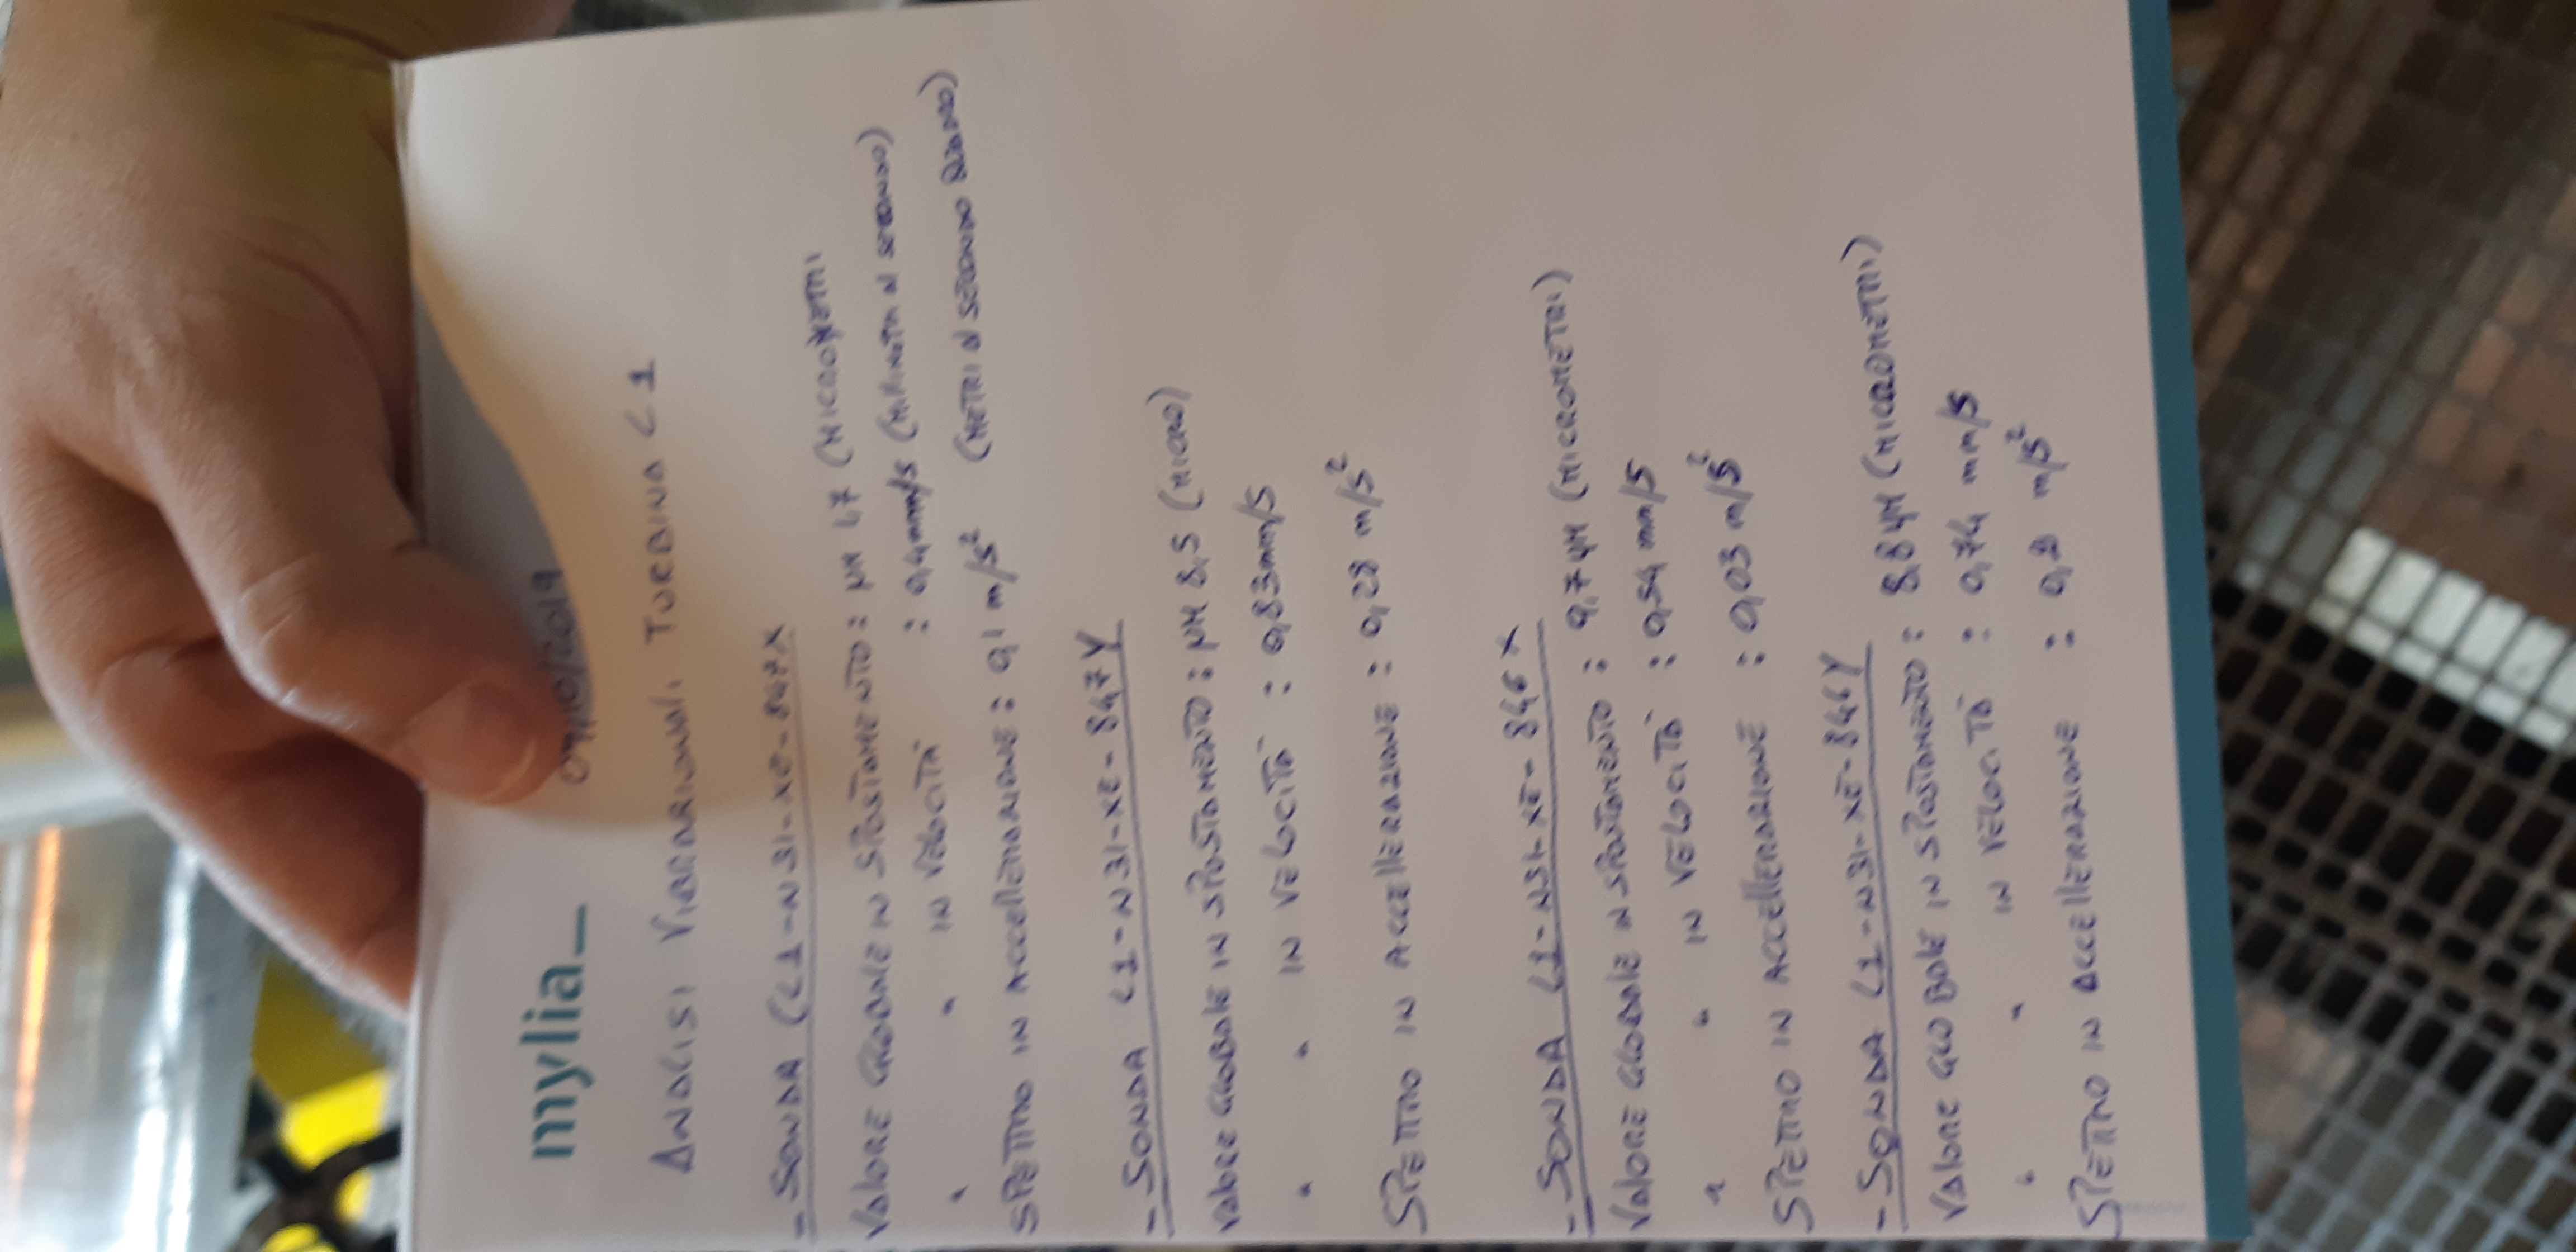 mylia_
07/10/2019
ANALISI VIBRAZIONALI TURBINA L1
- SONDA (L1-N31-XE-847X
VALORE GLOBALE IN SPOSTAMENTO: µM 6,7 (MICROMETRI
" " IN VELOCITÀ : 0,4mm/s (MILLIMETRI AL SECONDO)
SPETTRO IN ACCELLERAZIONE: 0,1 m/s² (METRI AL SECONDO QUADRO)
- SONDA L1-N31-XE-847Y
VALORE GLOBALE IN SPOSTAMENTO: µM 8,5 (MICRO)
" " IN VELOCITÀ : 0,83mm/s
SPETTRO IN ACCELLERAZIONE: 0,28 m/s²
- SONDA L1-N31-XE-846X
VALORE GLOBALE IN SPOSTAMENTO: 9,7 µM (MICROMETRI)
" " IN VELOCITÀ : 0,54 mm/s
SPETTRO IN ACCELLERAZIONE : 0,03 m/s²
- SONDA L1-N31-XE-846Y
VALORE GLOBALE IN SPOSTAMENTO: 8,8 µM (MICROMETRI)
" " IN VELOCITÀ : 0,74 mm/s
SPETTRO IN ACCELLERAZIONE : 0,2 m/s²